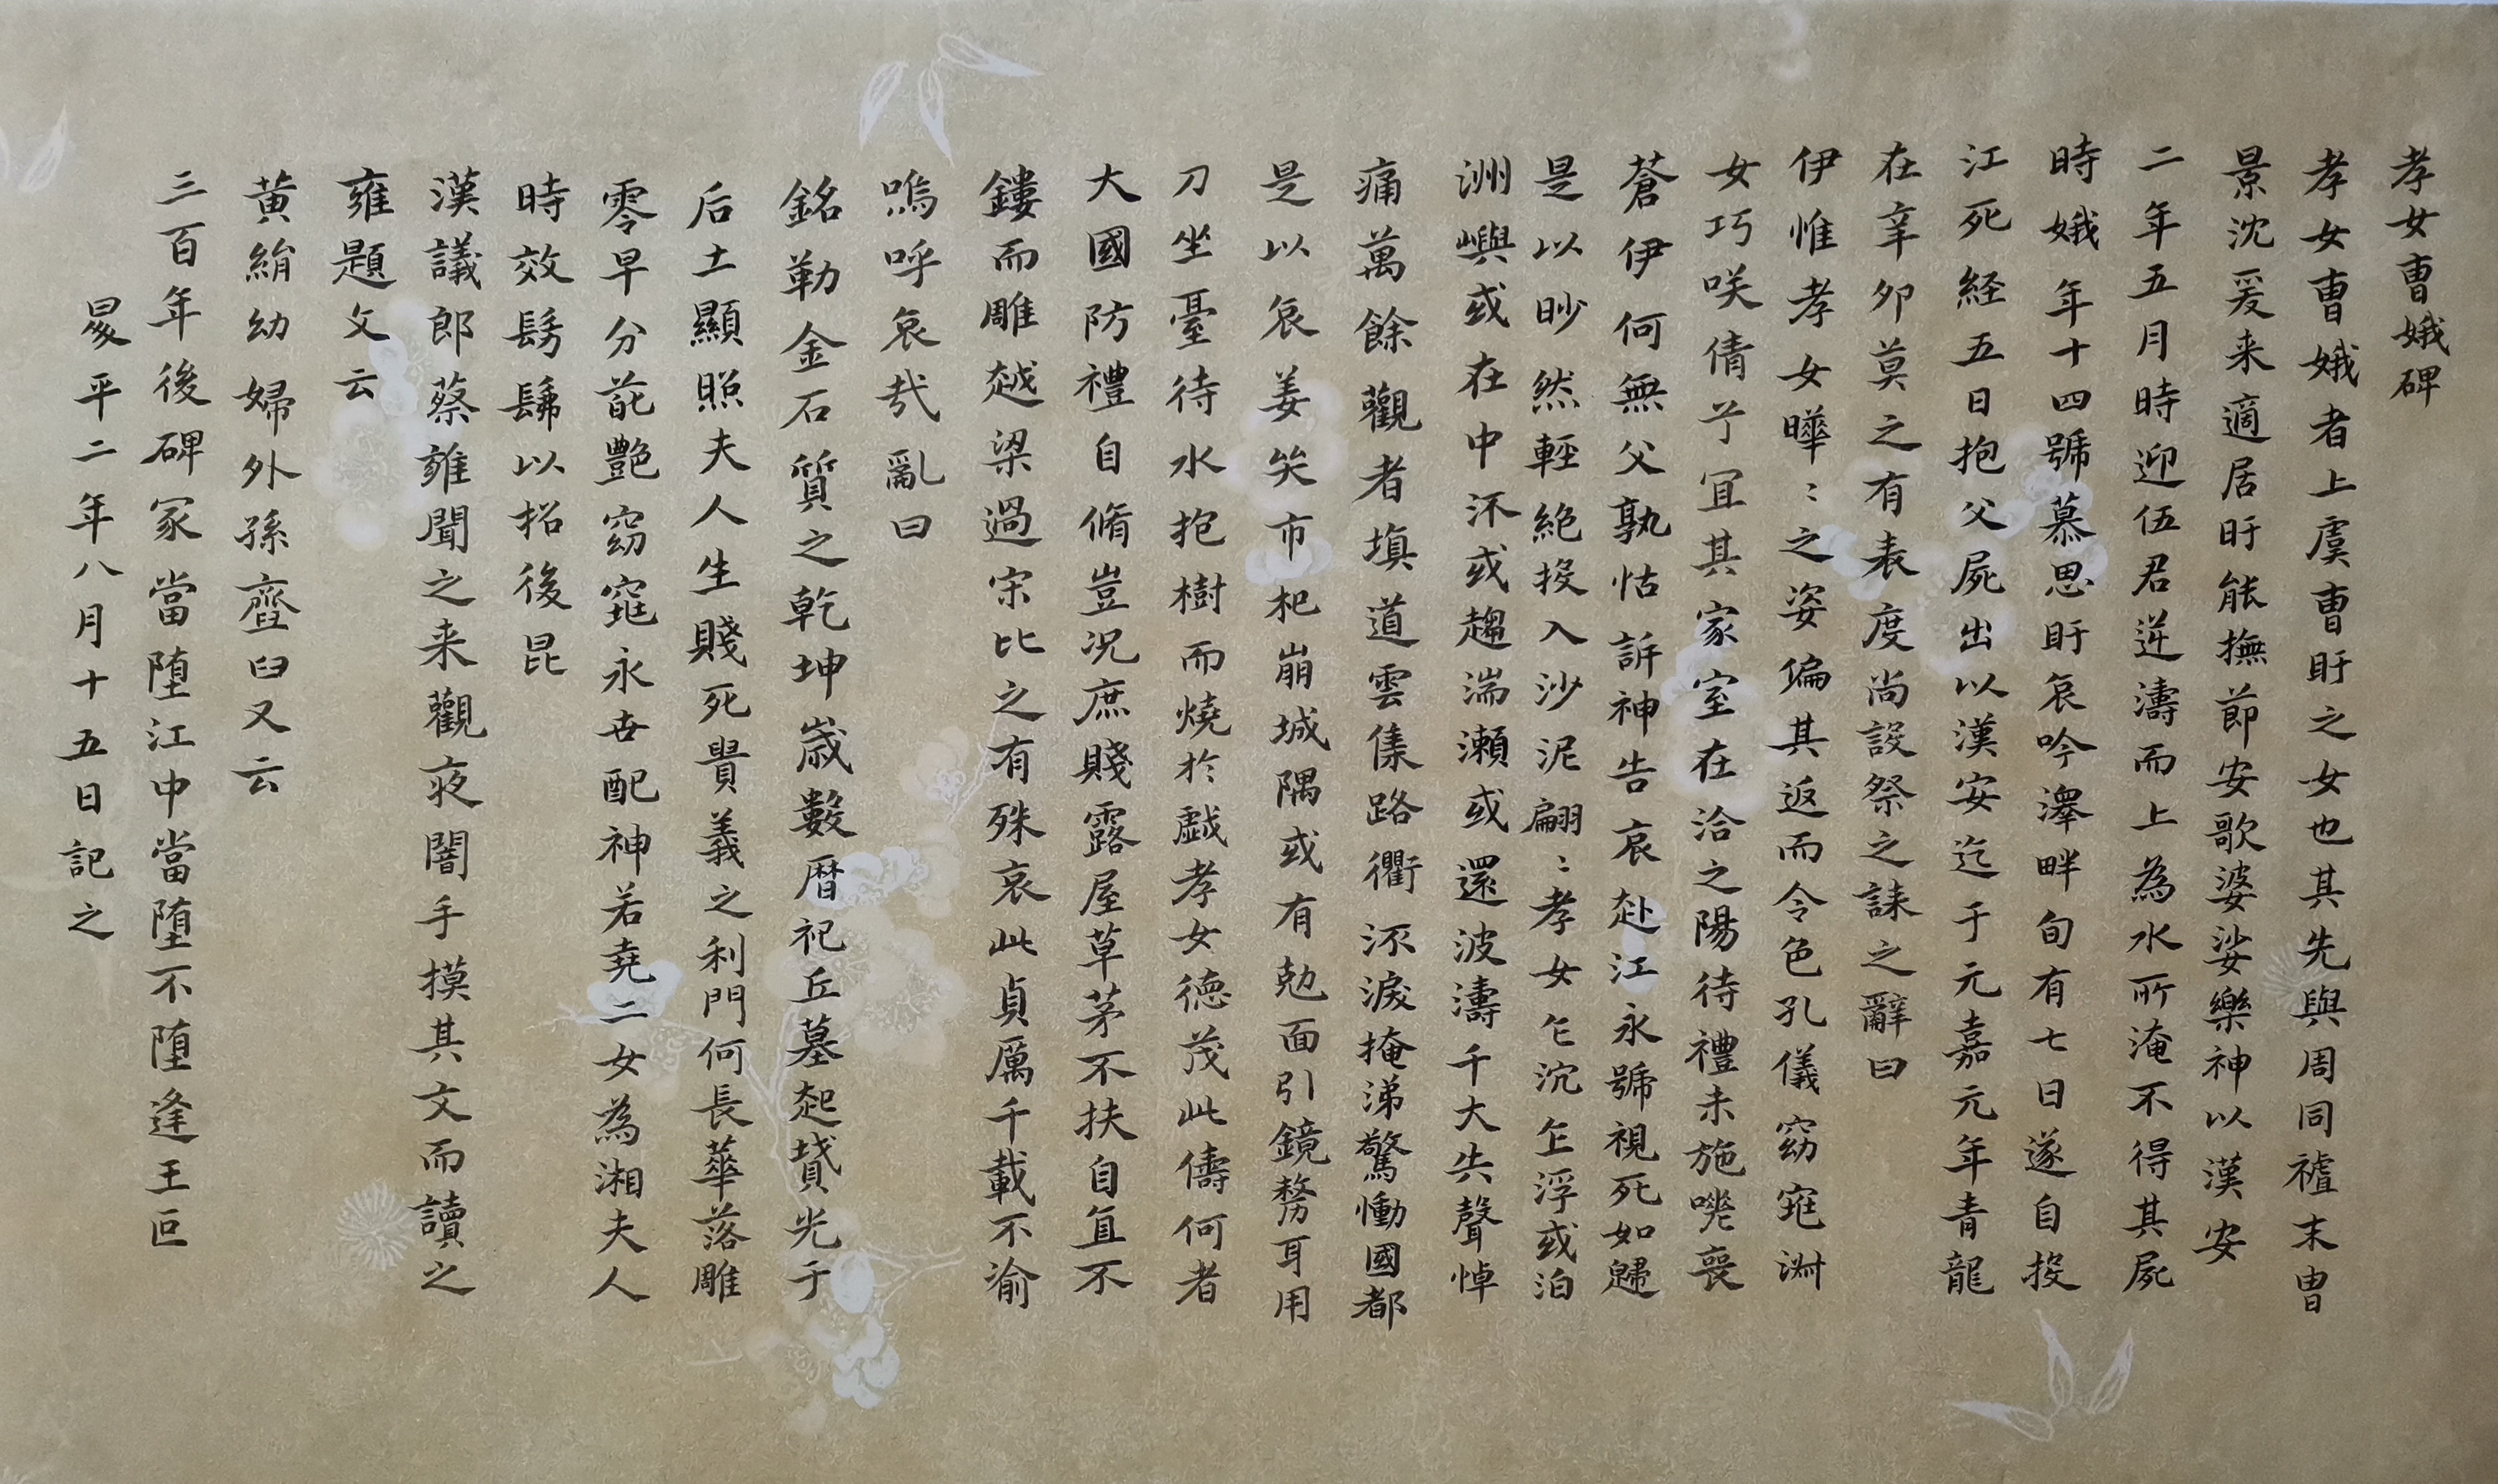 孝女曺娥碑
孝女曺娥者上虞曺盱之女也其先與周同禇末曺
景沈爰来適居盱能撫節安歌婆娑樂神以漢安
二年五月時迎伍君逆濤而上為水所淹不得其屍
時娥年十四號慕思盱哀吟澤畔旬有七日遂自投
江死経五日抱父屍出以漢安迄于元嘉元年青龍
在辛夘莫之有表度尚設祭之誄之辭曰
伊惟孝女曄〻之姿偏其返而令色孔儀窈窕淑
女巧咲倩兮宜其家室在洽之陽待禮未施嗟喪
蒼伊何無父孰怙訴神告哀赴江永號視死如歸
是以眇然輕絶投入沙泥翩〻孝女乍沉乍浮或泊
洲嶼或在中沠或趨湍瀬或還波濤千夫失聲悼
痛萬餘觀者填道雲集路衢沠淚掩涕驚慟國都
是以哀姜哭市杞崩城隅或有勊面引鏡剺耳用
刀坐臺待水抱樹而燒扵戯孝女徳茂此儔何者
大國防禮自脩豈况庶賤露屋草茅不扶自直不
鏤而雕越梁過宋比之有殊哀此貞厲千載不渝
嗚呼哀㦲亂曰
銘勒金石質之乾坤歳數曆祀丘墓起墳光于
后土顯照夫人生賤死貴義之利門何長華落雕
零早分葩艷窈窕永世配神若堯二女為湘夫人
時效髣髴以招後昆
漢議郎蔡雍聞之来觀夜闇手摸其文而讀之
雍題文云
黄絹幼婦外孫齏臼又云
三百年後碑冢當堕江中當堕不堕逢王叵
㫒平二年八月十五日記之